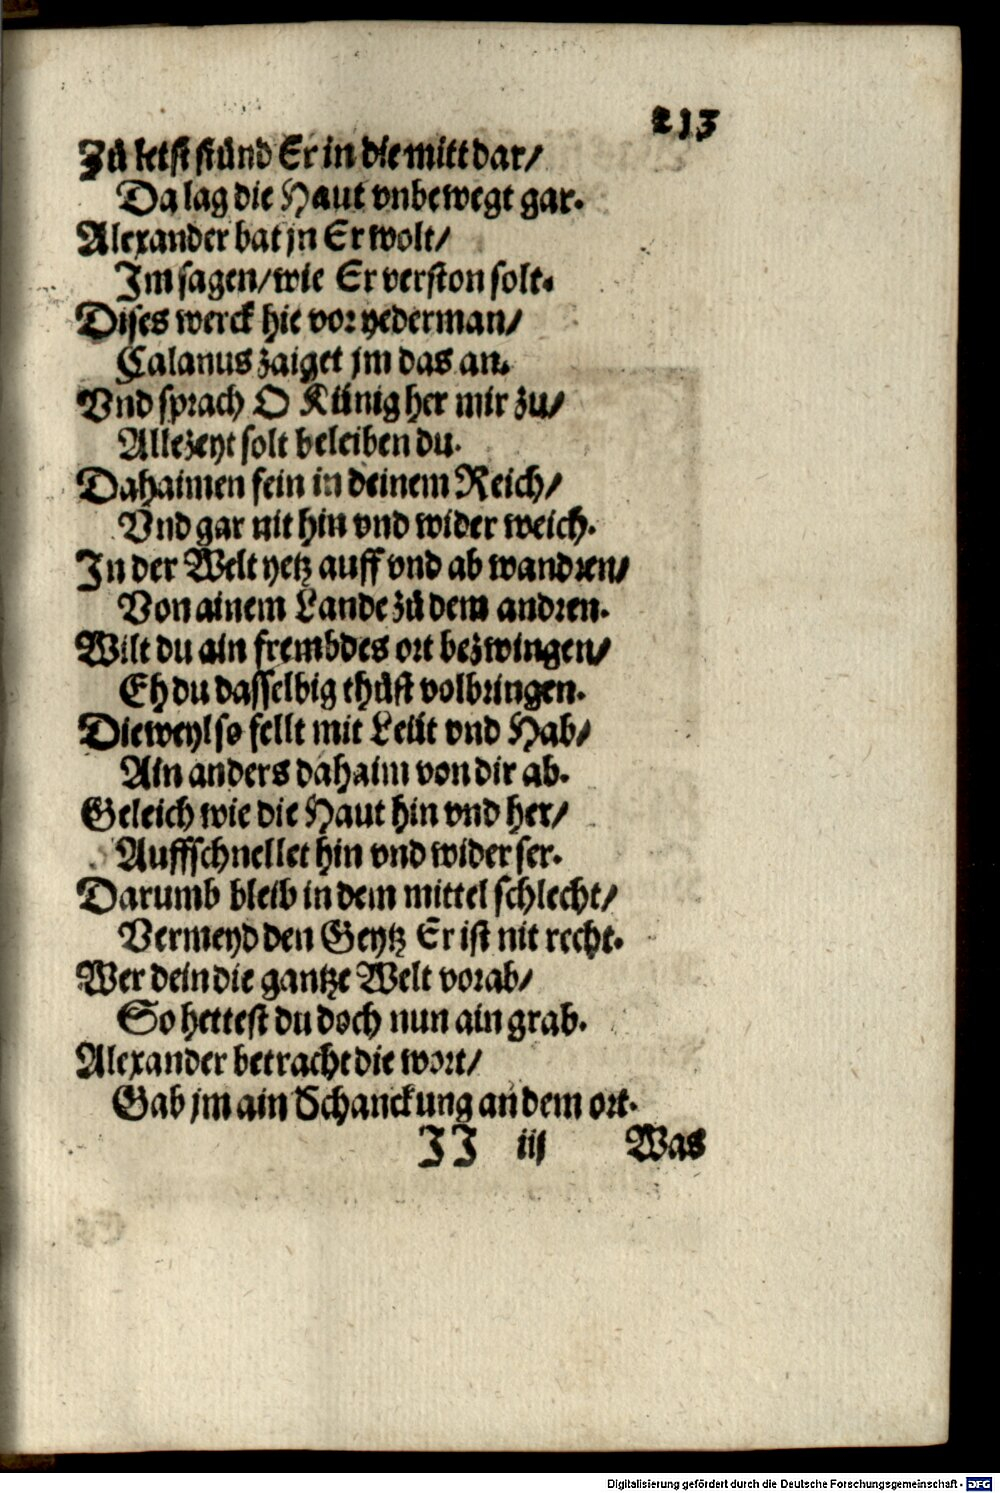 213
Zů letst stůnd Er in die mitt dar/
Da lag die Haut vnbewegt gar.
Alexander bat jn Er wolt/
Im sagen/ wie Er verston solt.
Dises werck hie vor yederman/
Calanus zaiget jm das an.
Vnd sprach O Künig her mir zu/
Allezeyt solt beleiben du.
Dahaimen fein in deinem Reich/
Vnd gar nit hin vnd wider weich.
In der Welt yetz auff vnd ab wandren/
Von ainem Lande zů dem andren.
Wilt du ain frembdes ort bezwingen/
Eh du dasselbig thůst volbringen.
Dieweyl so fellt mit Leüt vnd Hab/
Ain anders dahaim von dir ab.
Geleich wie die Haut hin vnd her/
Auffschnellet hin vnd wider ser.
Darumb bleib in dem mittel schlecht/
Vermeyd den Geytz Er ist nit recht.
Wer dein die gantze Welt vorab/
So hettest du doch nun ain grab.
Alexander betracht die wort/
Gab jm ain Schanckung an dem ort.
JJ iij Was
Digitalisierung gefördert durch die Deutsche Forschungsgemeinschaft - DFG